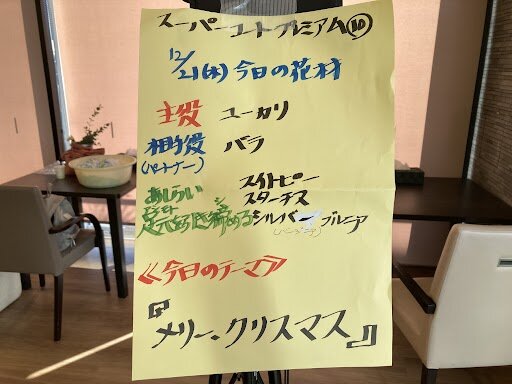 スーパーコートプレミアム⑩
12/21(木)今日の花材
主役 ユーカリ
相手役 バラ
(パートナー)
あしらい スイトピー
スターチス
足元を引き締める シルバーブルニア
≪今日のテーマ≫
『メリー・クリスマス』